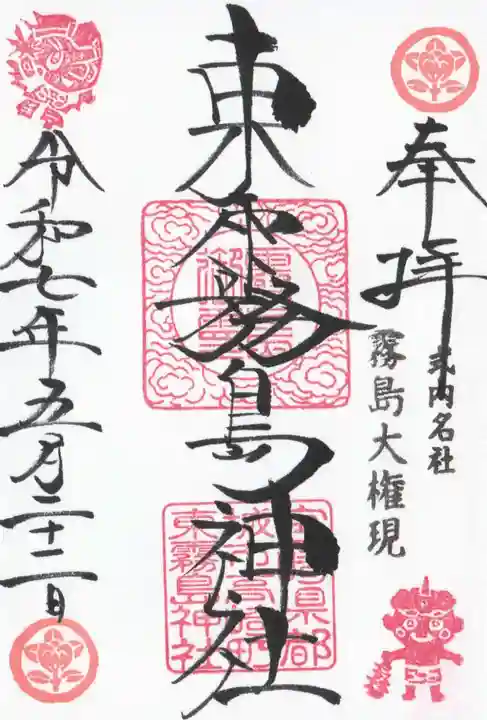 奉拝
式内名社
霧島大権現
東霧島神社
宮崎県都
城市高崎町
東霧島神社
令和七年五月二十二日